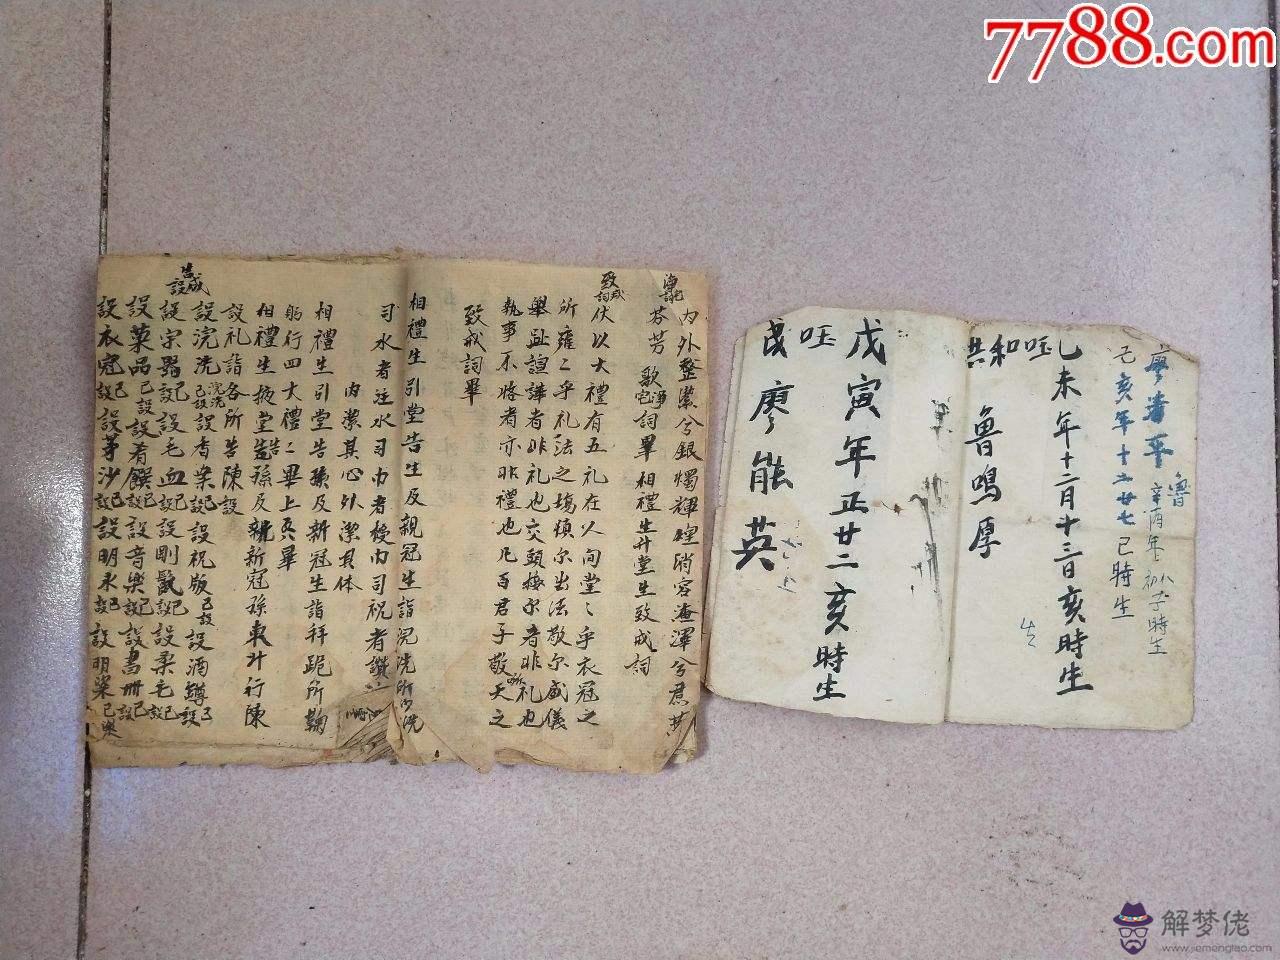 7788.com
淨
内外整肅兮銀燭輝煌
芬芳 歌淨詞畢相禮生升堂生致戒詞
致戒詞
伏以大禮有五礼在人间堂〻乎衣冠之
所雍〻乎礼法之塲慎尔出活敬尔威儀
舉趾諠譁者非礼也交頭接耳者非礼也
執事不恪者亦非禮也凡百君子敬
致戒詞畢
相禮生引堂告生及親冠生詣浣洗所
司水者注水司巾者授巾司祝者讚
内潔其心外潔其体
相禮生引堂告孫及新冠生詣拜跪所鞠
躬行四大禮二畢上
相禮生掖堂告孫及新冠孫東升行陳
設礼詣各所告陳設
告成設
設浣洗浣洗已設設香案已設設祝版已設設酒罇已設
設宗器已設設毛血已設設剛鬣已設設柔毛已設
設菓品已設設肴饌已設設音樂已設設書冊已設
設衣冠已設設茅沙已設設明水已設設明粢已
廖
魯
辛酉年 子時生
己亥年十二廿七已時生
生
乙未年十二月十三日亥時生
和
共
魯鳴厚
戊寅年正廿二亥時生
廖能英
解梦佬
www.jiemenglao.com